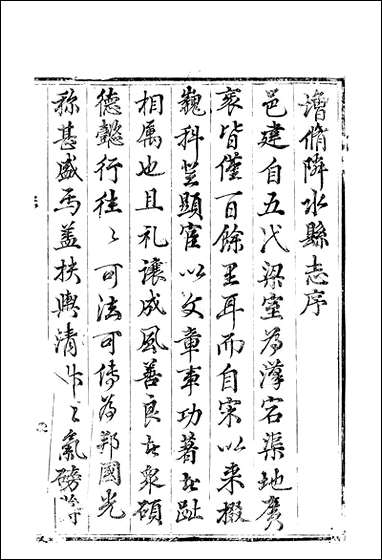 增脩隣水縣志序
邑建自五代梁室為漢宕渠地廣
袤皆僅百餘里耳而自宋以来掇
巍科登顯宦以文章事功著者趾
相属也且礼讓成風善良者衆碩
德懿行往〻可法可傳為邦國光
称甚盛焉盖扶輿清〻氣磅